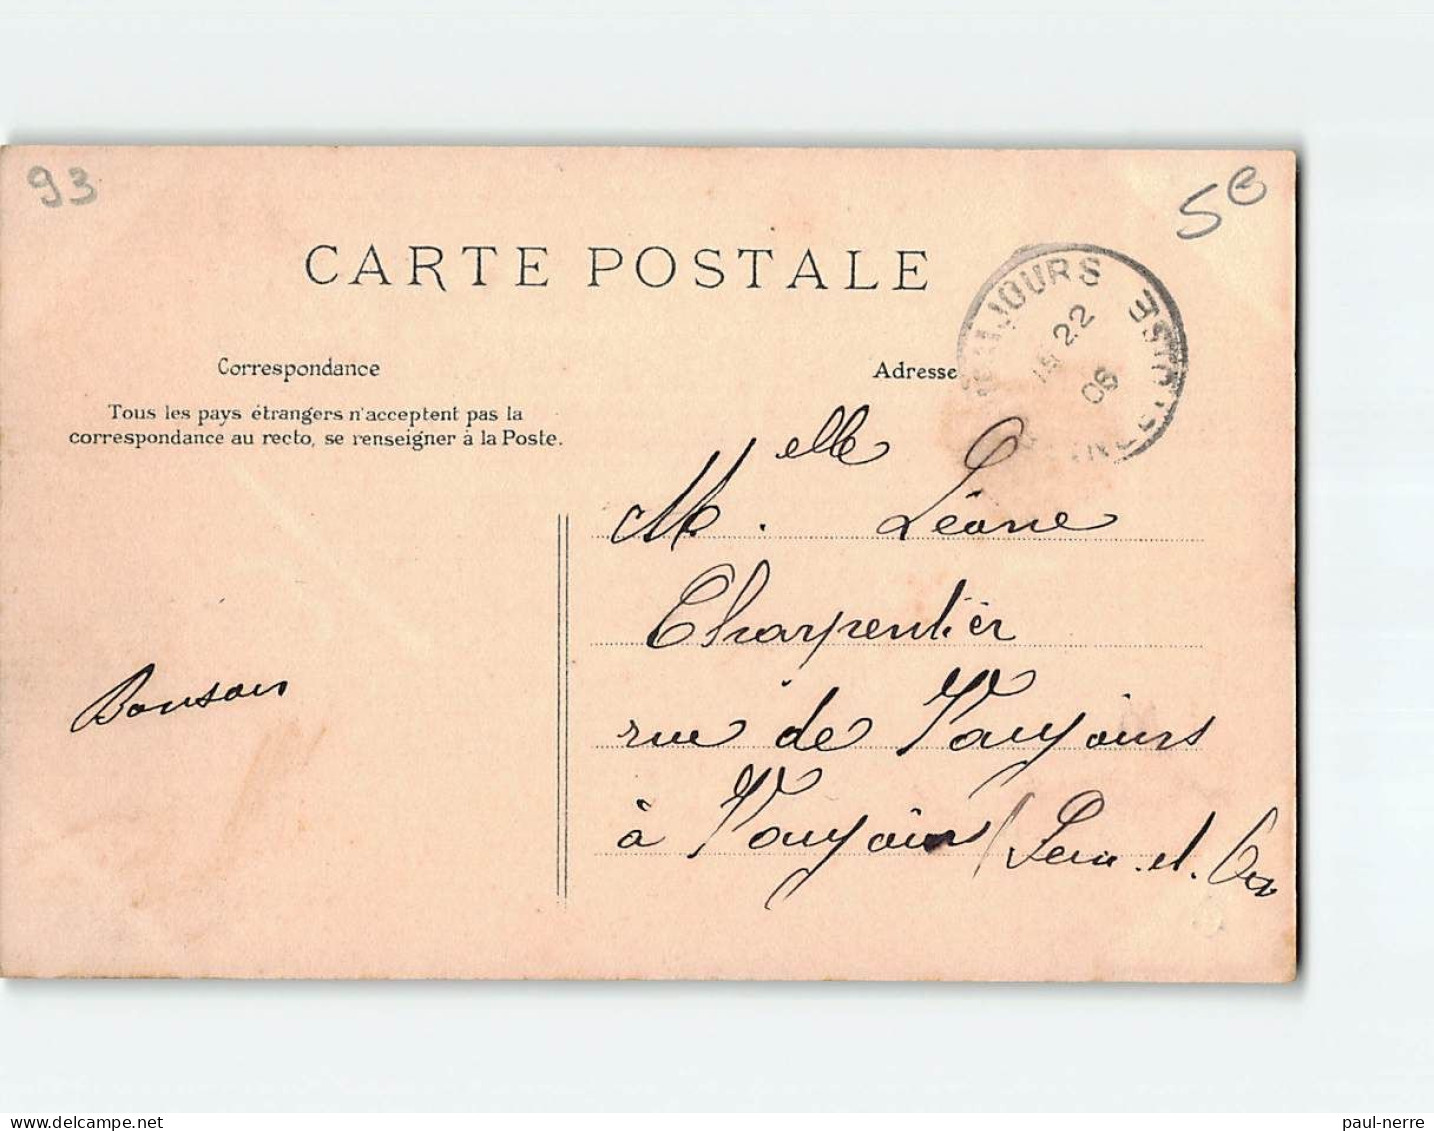 93
5
CARTE POSTALE
VAUJOURS
22
06
SEINE-ET-OISE
Correspondance
Adresse
Tous les pays étrangers n'acceptent pas la
correspondance au recto, se renseigner à la Poste.
Melle. Léone
Charpentier
rue de Vaujours
à Vaujours (Seine-et-Oise
Bonsoir
www.delcampe.net
paul-nerre